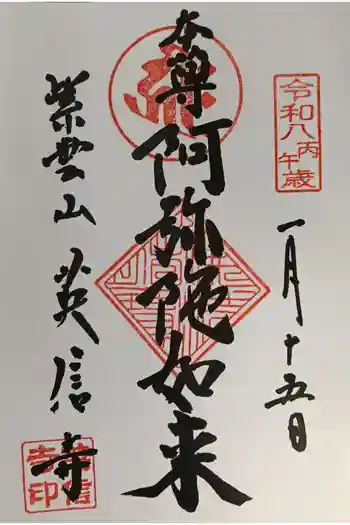 令和八丙午歳
一月十五日
本尊阿弥陀如来
紫雲山英信寺
英信寺印